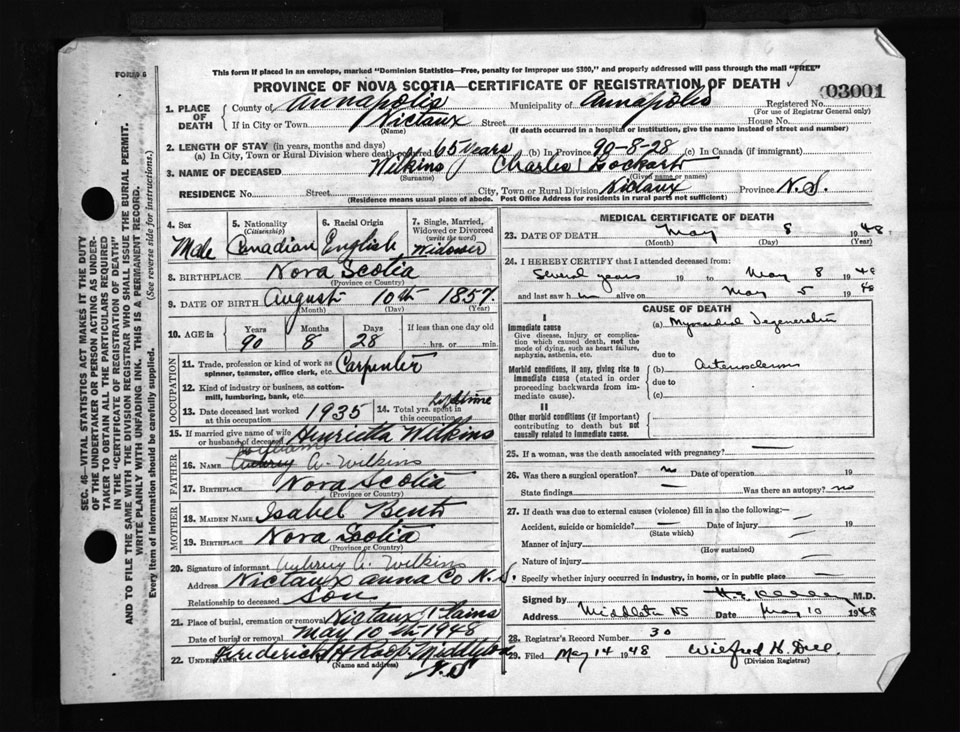 FORM 6
This form if placed in an envelope, marked "Dominion Statistics—Free, penalty for improper use $300," and properly addressed will pass through the mail "FREE"
PROVINCE OF NOVA SCOTIA—CERTIFICATE OF REGISTRATION OF DEATH
03001
1. PLACE OF DEATH
County of Annapolis Municipality of Annapolis Registered No.
(For use of Registrar General only)
If in City or Town Nictaux Street House No.
(Name) (If death occurred in a hospital or institution, give the name instead of street and number)
2. LENGTH OF STAY (in years, months and days)
(a) In City, Town or Rural Division where death occurred 65 years (b) In Province 90-8-28 (c) In Canada (if immigrant)
3. NAME OF DECEASED Wilkins Charles Lockart
(Surname) (Given name or names)
RESIDENCE No. Street City, Town or Rural Division Nictaux Province N.S.
(Residence means usual place of abode. Post Office Address for residents in rural parts not sufficient)
SEC. 46—VITAL STATISTICS ACT MAKES IT THE DUTY
OF THE UNDERTAKER OR PERSON ACTING AS UNDER-
TAKER TO OBTAIN ALL THE PARTICULARS REQUIRED
IN THE "CERTIFICATE OF REGISTRATION OF DEATH"
AND TO FILE THE SAME WITH THE DIVISION REGISTRAR WHO SHALL ISSUE THE BURIAL PERMIT.
WRITE PLAINLY WITH UNFADING INK. THIS IS A PERMANENT RECORD.
Every item of information should be carefully supplied. (See reverse side for instructions.)
4. Sex Male
5. Nationality (Citizenship) Canadian
6. Racial Origin English
7. Single, Married, Widowed or Divorced (write the word) Widower
8. BIRTHPLACE Nova Scotia
(Province or Country)
9. DATE OF BIRTH August 10th 1857.
(Month) (Day) (Year)
10. AGE in Years 90 Months 8 Days 28 If less than one day old hrs. or min.
OCCUPATION
11. Trade, profession or kind of work as spinner, teamster, office clerk, etc. Carpenter
12. Kind of industry or business, as cotton-mill, lumbering, bank, etc.
13. Date deceased last worked at this occupation 1935
14. Total yrs. spent in this occupation Lifetime
15. If married give name of wife or husband of deceased Henrietta Wilkins
FATHER
William
16. Name Aubrey A. Wilkins
17. BIRTHPLACE Nova Scotia
(Province or Country)
MOTHER
18. MAIDEN NAME Isabel Bent
19. BIRTHPLACE Nova Scotia
(Province or Country)
20. Signature of informant Aubrey A. Wilkins
Address Nictaux Anna Co N.S.
Relationship to deceased Son
21. Place of burial, cremation or removal Nictaux Plains
Date of burial or removal May 10th 1948
22. UNDERTAKER Frederick H Roop Middleton
(Name and address) N.S
MEDICAL CERTIFICATE OF DEATH
23. DATE OF DEATH May 8 1948
(Month) (Day) (Year)
24. I HEREBY CERTIFY that I attended deceased from:
Several years 19 to May 8 1948
and last saw him alive on May 5 1948
CAUSE OF DEATH
I
Immediate cause
Give disease, injury or complication which caused death, not the mode of dying, such as heart failure, asphyxia, asthenia, etc.
(a) Myocardial Degeneration
due to
Morbid conditions, if any, giving rise to immediate cause (stated in order proceeding backwards from immediate cause).
(b) Arteriosclerosis
due to
(c)
II
Other morbid conditions (if important) contributing to death but not causally related to immediate cause.
25. If a woman, was the death associated with pregnancy? —
26. Was there a surgical operation? no Date of operation 19
State findings — Was there an autopsy? no
27. If death was due to external causes (violence) fill in also the following:—
Accident, suicide or homicide? — Date of injury — 19
(State which)
Manner of injury —
(How sustained)
Nature of injury —
Specify whether injury occurred in industry, in home, or in public place —
Signed by M.D.
Address Middleton NS Date May 10 1948
28. Registrar's Record Number 30
29. Filed May 14 1948 Wilfred H.
(Division Registrar)